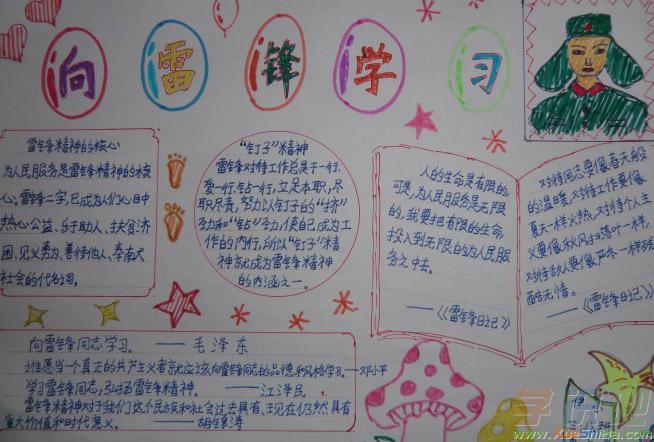 向雷锋学习
雷锋精神的核心
为人民服务是雷锋精神的核
心,雷锋二字,已成为人们心目中
热心公益、乐于助人、扶贫济
困、见义勇为、善待他人、奉献
社会的代名词。
“钉子”精神
雷锋对待工作总是干一行、
爱一行、钻一行,立足本职,尽
职尽责,努力以钉子的“挤”
劲和“钻”劲,使自己成为工
作的内行,所以“钉子”精
神就成为雷锋精神
的内涵之一。
人的生命是有限的,
可是,为人民服务是无限
的,我要把有限的生命,
投入到无限的为人民服
务之中去。
——《雷锋日记》
对待同志要像春天般
的温暖,对待工作要像
夏天一样火热,对待个人主
义要像秋风扫落叶一样,
对待敌人要像严冬一样残
酷无情。
——《雷锋日记》
向雷锋同志学习。——毛泽东
谁愿当一个真正的共产主义者就应该向雷锋同志的品德和风格学习。——邓小平
学习雷锋同志,弘扬雷锋精神。——江泽民
雷锋精神对于我们这个民族和社会过去具有、现在仍然具有
重大价值和时代意义。——胡锦涛
www.XueShiJia.com